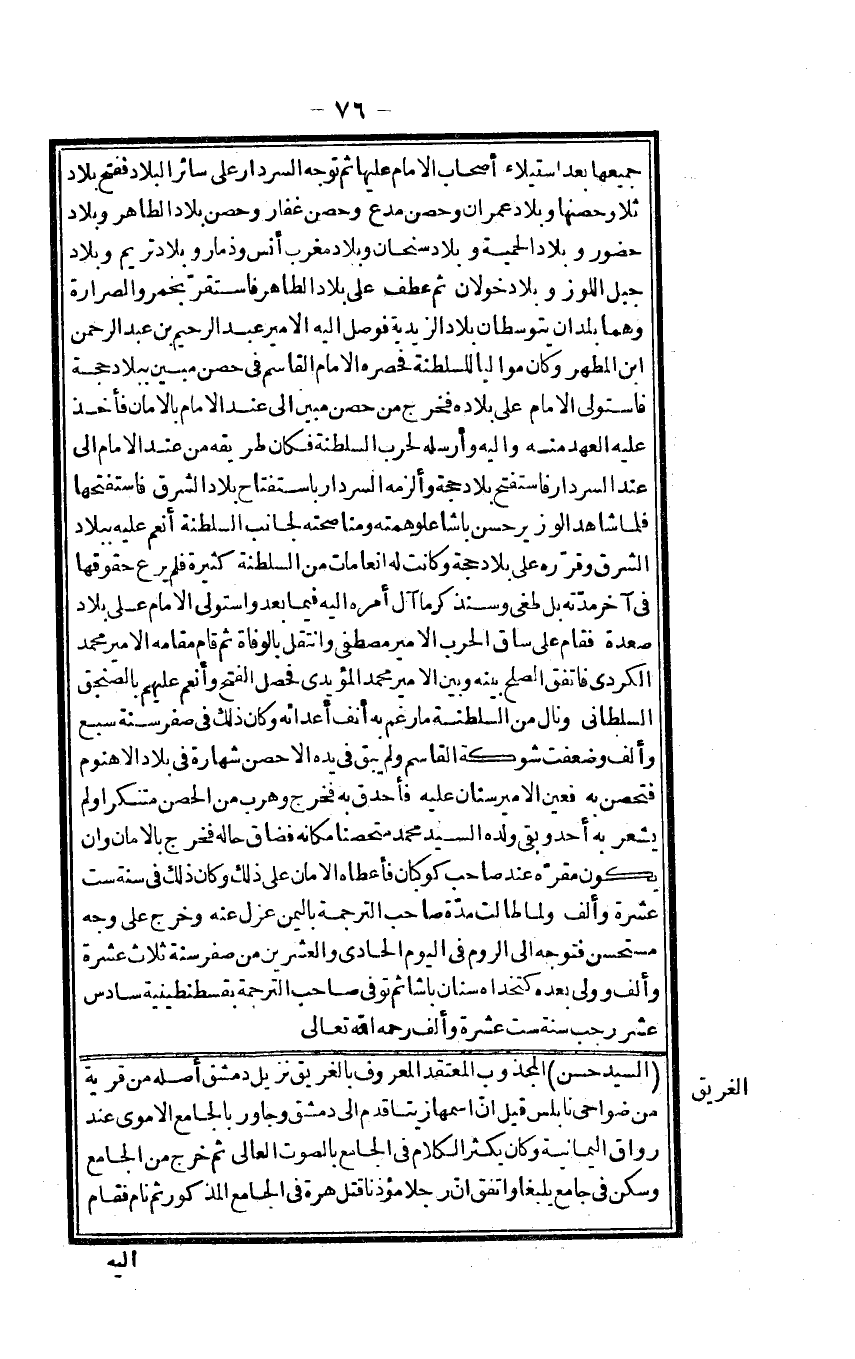 - ٧٦ -
جميعها بعد استيلاء أصحاب الامام عليها ثم توجه السردار على سائر البلاد ففتح بلاد
ثلا وحصنها وبلاد عمران وحصن مدع وحصن غفار وحصن بلاد الظاهر وبلاد
حضور و بلاد الحمية و بلاد سنحان وبلاد مغرب أنس وذمار و بلاد تريم و بلاد
جبل اللوز و بلاد خولان ثم عطف على بلاد الظاهر فاستقرّ بخمر والصرارة
وهما بلدان يتوسطان بلاد الزيدية فوصل اليه الامير عبد الرحيم بن عبد الرحمن
ابن المطهر وكان مواليا للسلطنة فحصره الامام القاسم فى حصن مبين ببلاد حجة
فاستولى الامام على بلاده فخرج من حصن مبين الى عند الامام بالامان فأخذ
عليه العهد منه واليه وأرسله لحرب السلطنة فكان طريقه من عند الامام الى
عند السردار فاستفتح بلاد حجة وألزمه السردار باستفتاح بلاد الشرق فاستفتحها
فلما شاهد الوزير حسن باشا علوهمته ومناصحته لجانب السلطنة أنعم عليه ببلاد
الشرق وقرّره على بلاد حجة وكانت له انعامات من السلطنة كثيرة فلم يرع حقوقها
فى آخر مدّته بل طغى وسنذكر ما آل أمره اليه فيما بعد واستولى الامام على بلاد
صعدة فقام على ساق الحرب الامير مصطفى وانتقل بالوفاة ثم قام مقامه الامير محمد
الكردى فاتفق الصلح بينه وبين الامير محمد المؤيدى فحصل الفتح وأنعم عليهم بالصنجق
السلطانى ونال من السلطنة مارغم به أنف أعدائه وكان ذلك فى صفر سنة سبع
وألف وضعفت شوكة القاسم ولم يبق فى يده الا حصن شهارة فى بلاد الاهنوم
فتحصن به فعين الامير سنان عليه فأحدق به فخرج وهرب من الحصن متنكرا ولم
يشعر به أحد وبقى ولده السيد محمد متحصنا مكانه فضاق حاله فخرج بالامان وان
يكون مقرّه عند صاحب كوكبان فأعطاه الامان على ذلك وكان ذلك فى سنة ست
عشرة وألف ولما طالت مدّة صاحب الترجمة باليمن عزل عنه وخرج على وجه
مستحسن فتوجه الى الروم فى اليوم الحادى والعشرين من صفر سنة ثلاث عشرة
وألف وولى بعده كتخداه سنان باشا ثم توفى صاحب الترجمة بقسطنطينية سادس
عشر رجب سنة ست عشرة وألف رحمه الله تعالى
(السيد حسن) المجذوب المعتقد المعروف بالغريق نزيل دمشق أصله من قرية
الغريق
من ضواحى نابلس قيل انّ اسمها زيتا قدم الى دمشق وجاور بالجامع الاموى عند
رواق اليمانية وكان يكثر الكلام فى الجامع بالصوت العالى ثم خرج من الجامع
وسكن فى جامع يلبغا واتفق انّ رجلا مؤذنا قتل هرة فى الجامع المذكور ثم نام فقام
اليه